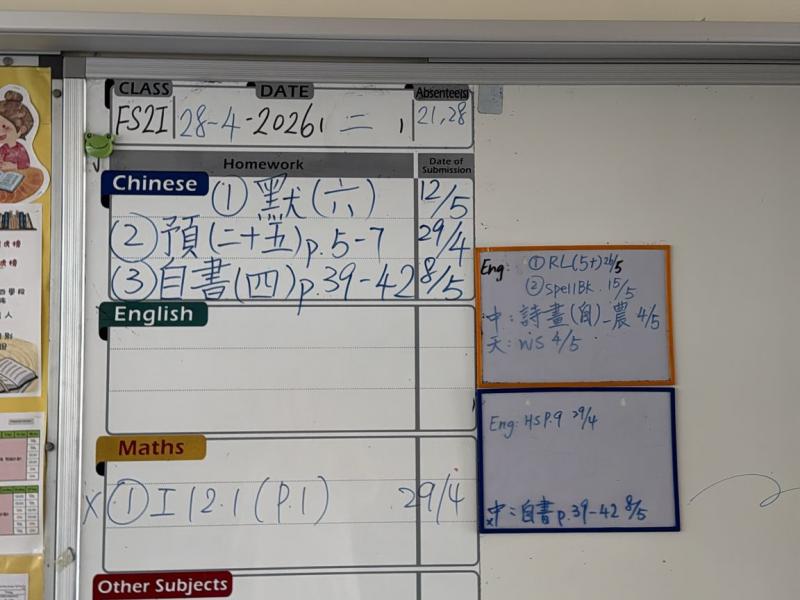 CLASS DATE Absentee(s)
FS2I 28-4-2026, 二 , 21,28
Homework Date of Submission
Chinese ① 默(六) 12/5
② 預(二十五)p.5-7 29/4
③ 自書(四)p.39-42 8/5
English
Maths
X ① I 12.1 (P.1) 29/4
Other Subjects
Eng: ① RL(5+) 26/5
② SpellBk. 15/5
中: 詩畫(自)_農 4/5
天: WS 4/5
Eng: HS P.9 29/4
中: 自書 p.39-42 8/5